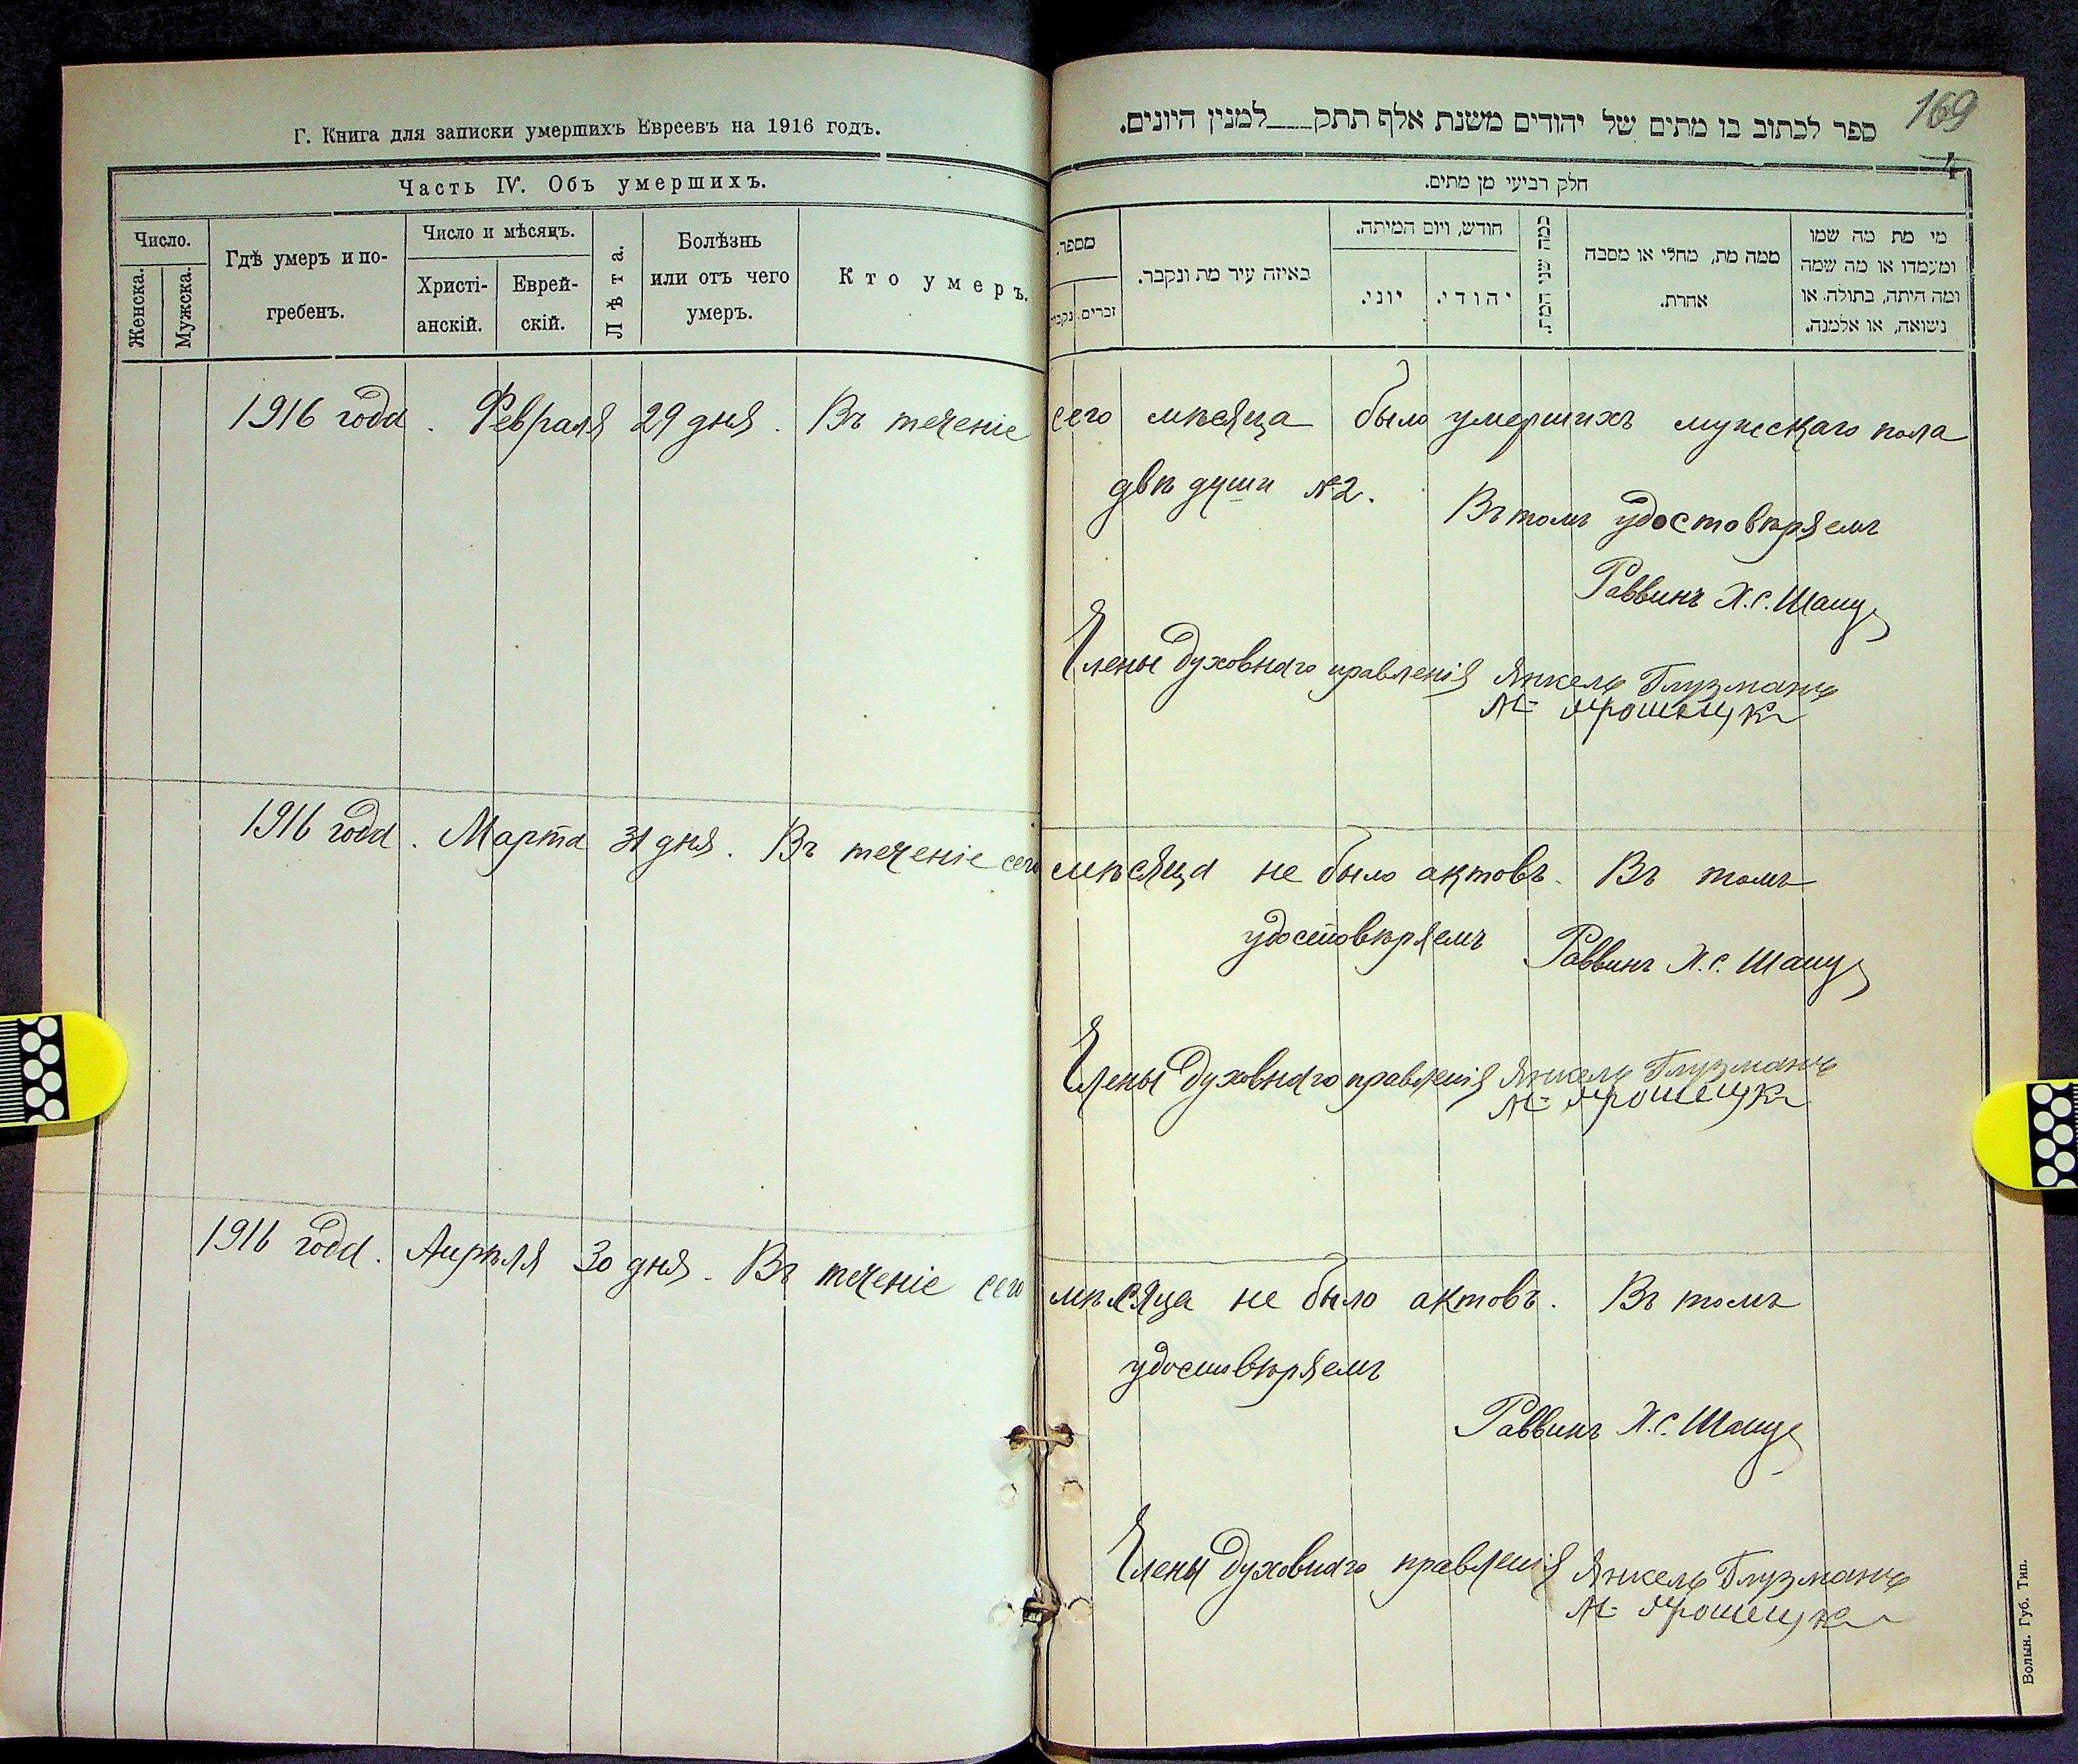 Г. Книга для записки умершихъ Евреевъ на 1916 годъ.
Часть IV. Объ умершихъ.
Число.
Женска.
Мужска.
Гдѣ умеръ и по-
гребенъ.
Число и мѣсяцъ.
Христі-
анскій.
Еврей-
скій.
Лѣта.
Болѣзнь
или отъ чего
умеръ.
Кто умеръ.
169
ספר לכתוב בו מתים של יהודים משנת אלף תתק___למנין היונים.
4
חלק רביעי מן מתים.
מי מת מה שמו
ומעמדו או מה שמה
ומה היתה, בתולה, או
נשואה, או אלמנה.
ממה מת, מחלי או מסבה
אחרת.
כמה שני המת.
חודש, ויום המיתה.
יהודי.
יוני.
באיזה עיר מת ונקבר.
מספר.
זכרים.
1916 года. Февраля 29 дня. Въ теченіе сего мѣсяца было умершихъ мужскаго пола
двѣ души №2. Въ томъ удостовѣряемъ
Раввинъ Х.С.
Члены духовнаго правленія Янкель Глузманъ
1916 года. Марта 31 дня. Въ теченіе сего мѣсяца не было актовъ. Въ томъ
удостовѣряемъ Раввинъ Х.С.
Члены духовнаго правленія Янкель Глузманъ
1916 года. Апрѣля 30 дня. Въ теченіе сего мѣсяца не было актовъ. Въ томъ
удостовѣряемъ
Раввинъ Х.С.
Члены духовнаго правленія Янкель Глузманъ
Волын. Губ. Тип.